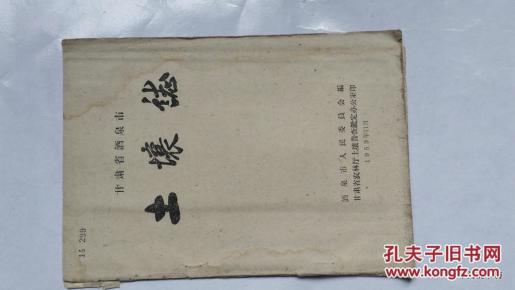 15 299
甘肃省酒泉市
土壤誌
酒泉市人民委员会编
甘肃省农林厅土壤普查鉴定办公室印
1959年11月
孔夫子旧书网
www.kongfz.com